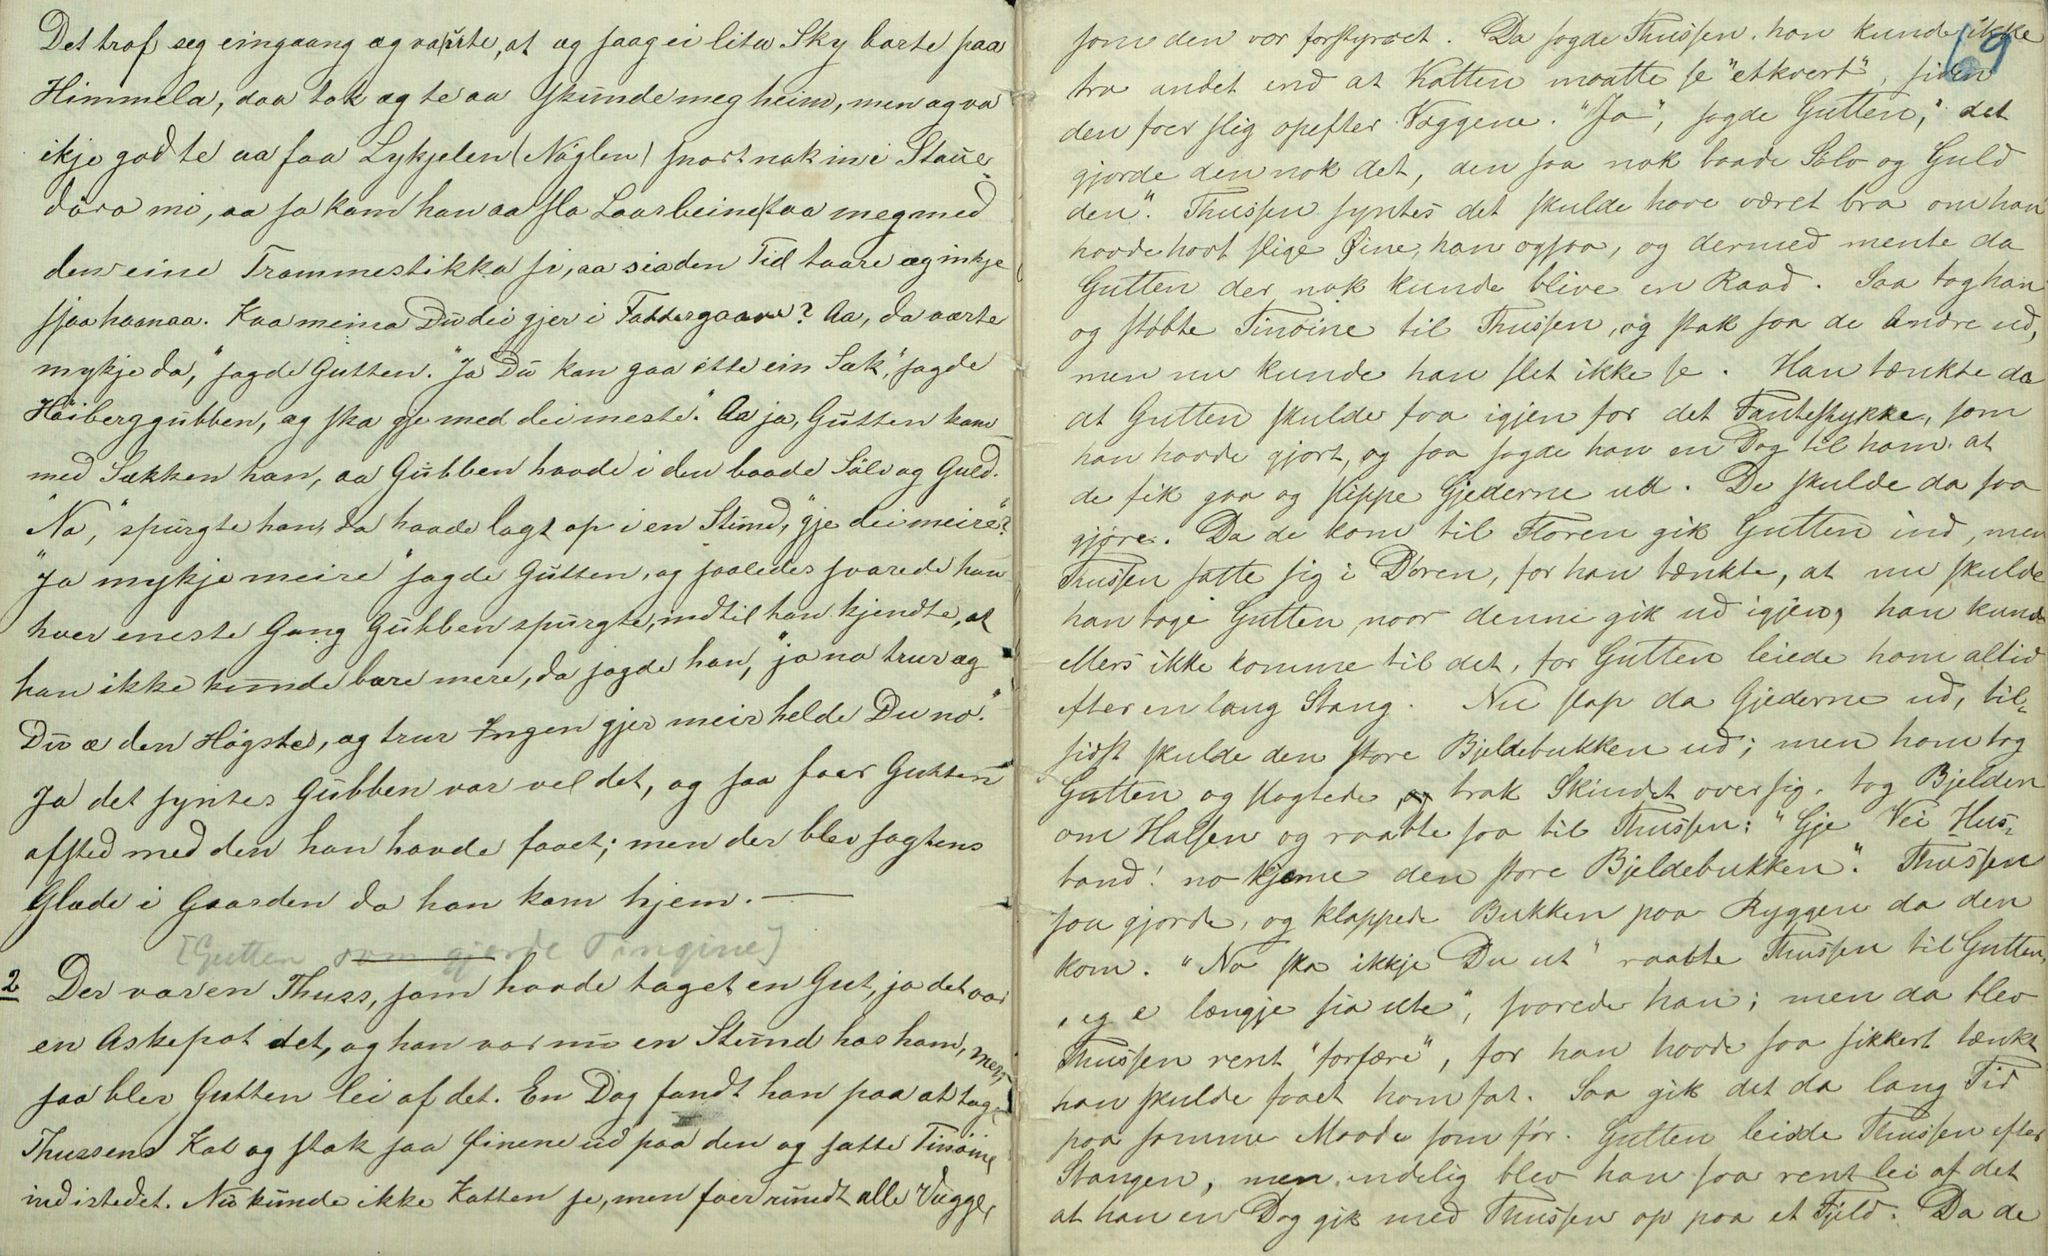 Det traf seg eingaang æg va úte, at æg saag ei lita Sky borte paa
Himmela, daa tok æg te aa skunde meg heim, men æg va
ikje god te aa faa Lykjelen (Nöglen) snart nok in i Staue-
döra mi, aa so kom han aa sla Laarbeine taa meg med
den eine Trommestikka si, aa sia den Tid taare æg inkje
sjaa honaa. Kaa meina Du dei gjer i Faddergaave? Aa, da værte
mykje da," sagde Gutten. "Ja Du kan gaa ette ein Sæk", sagde
Höiberggubben, æg ska gje med dei meste." Aa ja, Gutten kom
med Sækken han, aa Gubben havde i den baade Sölv og Guld.
"No," spurgte han, da havde lagt op i en Stund, "gje dei meire"?
"Ja mykje meire" sagde Gutten, og saaledes svarede han
hver eneste Gang Gubben spurgte, indtil han kjendte, at
han ikke kunde bære mere, da sagde han, "ja no trur æg
Du æ den Högste, æg trur Ingen gjer meir helde Du no."
Ja det syntes Gubben var vel det, og saa foer Gutten
afsted med den han havde faaet; men der blev sagtens
Glæde i Gaarden da han kom hjem. —
[Gutten som gjorde Tingine]
2 Der var en Thuss, som havde taget en Gut, ja det var
en Askepot det, og han var nu en Stund hos ham, men
saa blev Gutten lei af det. En Dag fandt han paa at tage
Thussens Kat og stak saa Öinene ud paa den og satte Tinöine
ind istedet. Nu kunde ikke Katten se, men foer rundt alle Vægge,
19
som den var forstyrret. Da sagde Thussen, han kunde ikke
tro andet end at Katten maatte se "etkvert", siden
den foer slig opefter Væggene. "Ja", sagde Gutten, "det
gjorde den nok det, den saa nok baade Sölv og Guld
den". Thussen syntes det skulde have været bra om han
havde havt slige Øine, han ogsaa, og dermed mente da
Gutten der nok kunde blive en Raad. Saa tog han
og stöbte Tinöine til Thussen, og stak saa de andre ud,
men nu kunde han slet ikke se. Han tænkte da
at Gutten skulde faa igjen for det Fantestykke, som
han havde gjort, og saa sagde han en Dag til ham at
de fik gaa og slippe Gjederne ud. De skulde da saa
gjöre. Da de kom til Floren gik Gutten ind, men
Thussen satte sig i Dören, for han tænkte, at nu skulde
han tage Gutten naar denne gik ud igjen, han kunde
ellers ikke komme til det, for Gutten leiede ham altid
efter en lang Stang. Nu slap da Gjederne ud, til-
sidst skulde den store Bjeldebukken ud; men ham tog
Gutten og slagtede, og trak Skindet over sig, tog Bjelden
om Halsen og raabte saa til Thussen: "Gje Vei Hus-
band! no kjeme den store Bjeldebukken". Thussen
saa gjorde, og klappede Bukken paa Ryggen da den
kom. "No ska ikkje Du ut" raabte Thussen til Gutten,
"eg e længje sia ute", svarede han; men da blev
Thussen rent "forfære", for han havde saa sikkert tænkt
han skulde faaet ham fat. Saa gik det da lang Tid
paa samme Maade som för. Gutten leidde Thussen efter
Stangen, men endelig blev han saa rent lei af det
at han en Dag gik med Thussen op paa et Fjeld. Da de